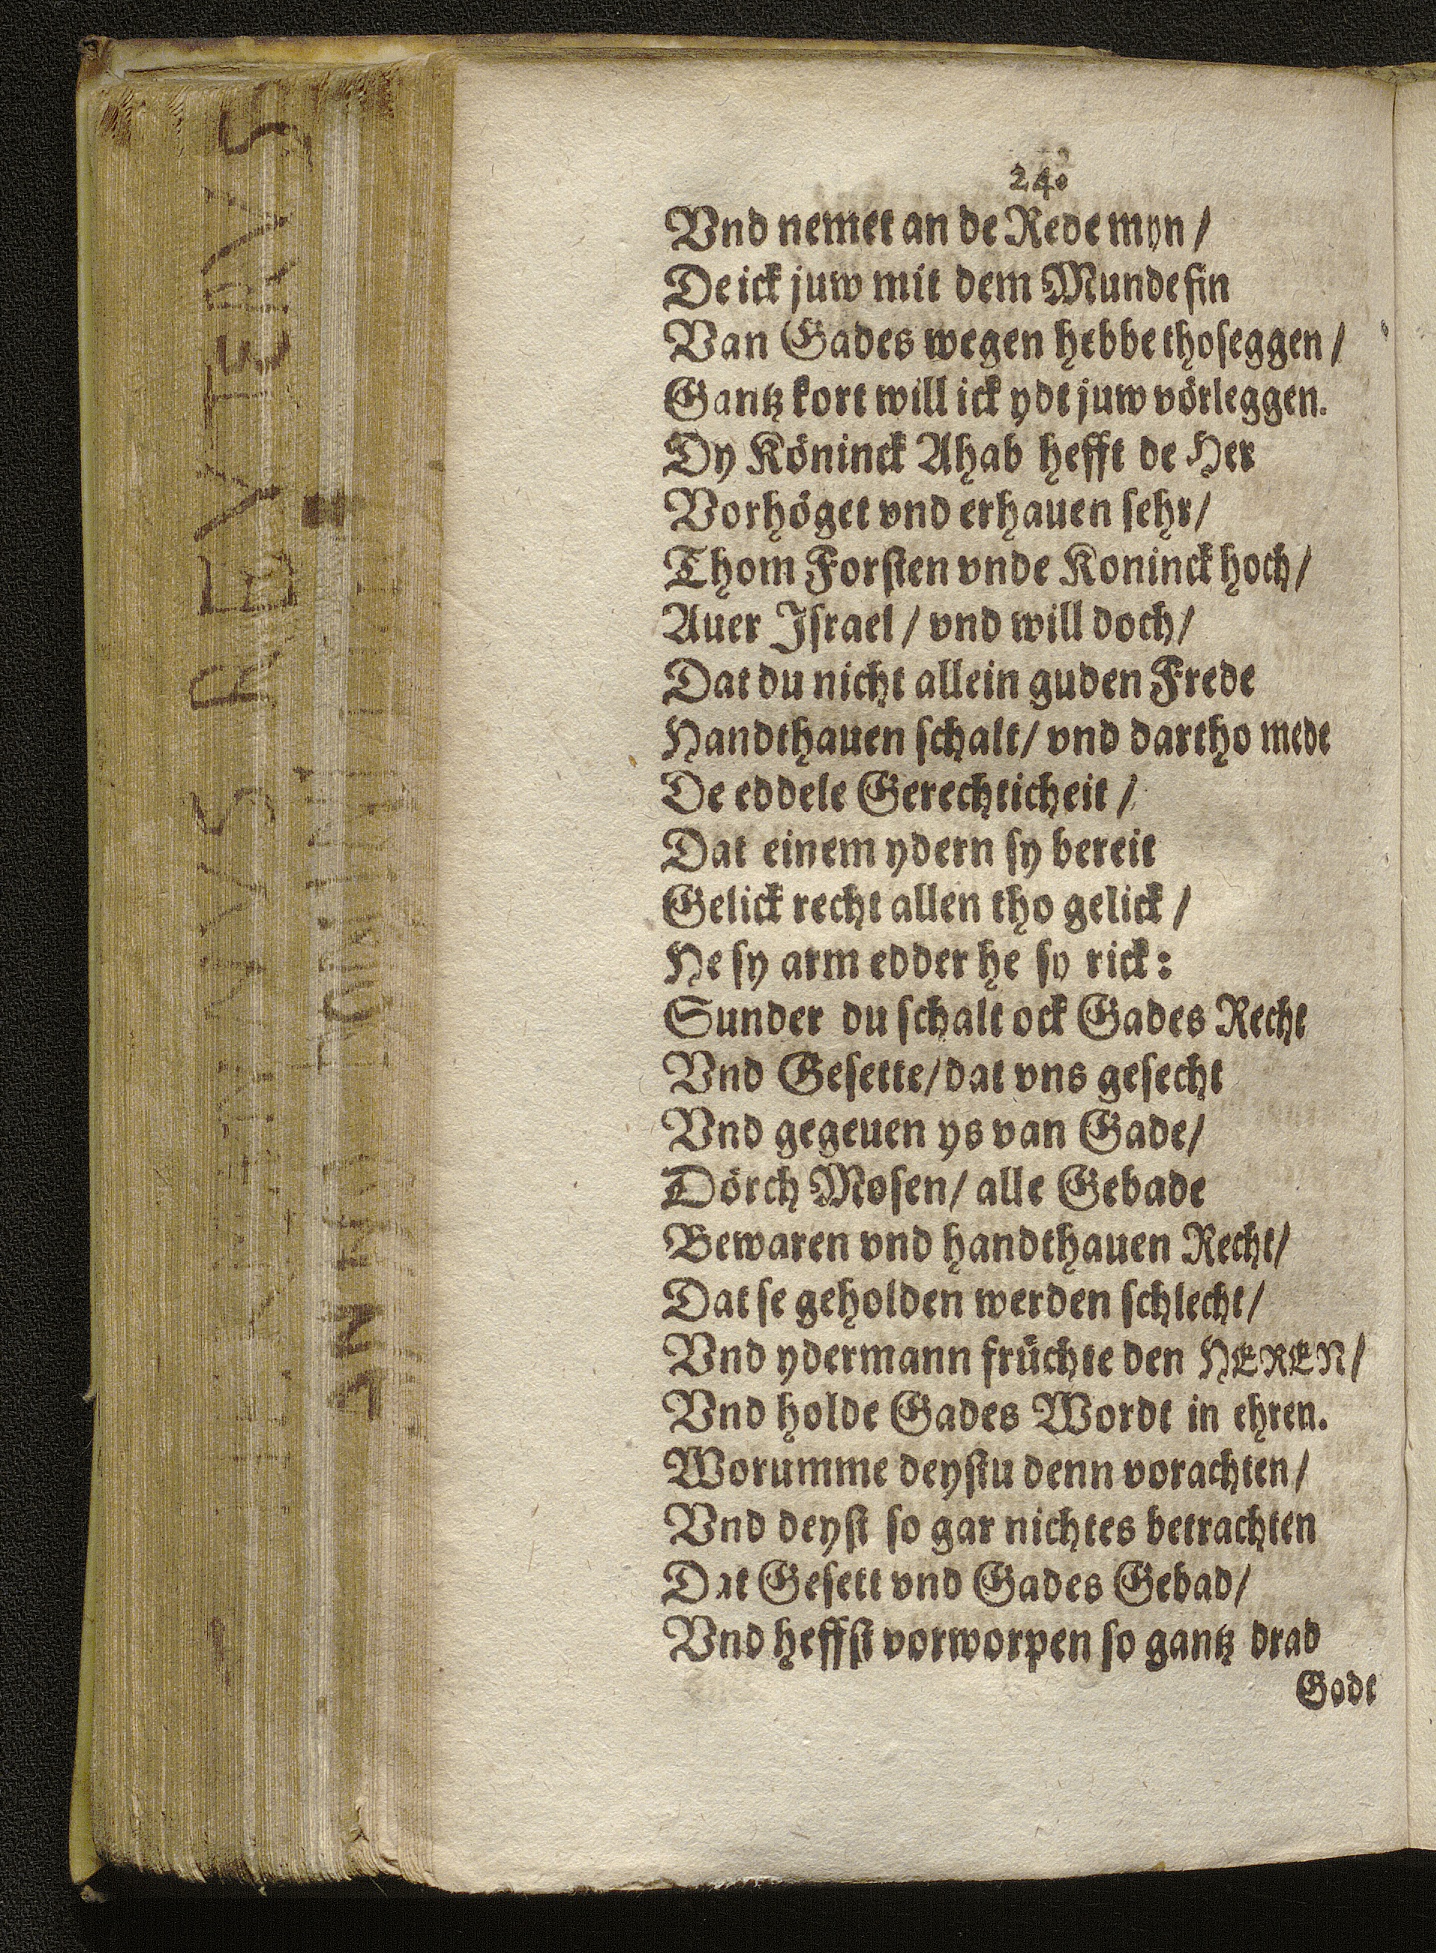 24.
Vnd nemet an de Rede myn /
De ick juw mit dem Munde fin
Van Gades wegen hebbe thoseggen /
Gantz kort will ick ydt juw vörleggen.
Dy Köninck Ahab hefft de Her
Vorhöget vnd erhauen sehr /
Thom Forsten vnde Koninck hoch /
Auer Israel / vnd will doch /
Dat du nicht allein guden Frede
Handthauen schalt / vnd dartho mede
De eddele Gerechticheit /
Dat einem ydern sy bereit
Gelick recht allen tho gelick /
He sy arm edder he sy rick :
Sunder du schalt ock Gades Recht
Vnd Gesette / dat vns gesecht
Vnd gegeuen ys van Gade /
Dörch Mosen / alle Gebade
Bewaren vnd handthauen Recht /
Dat se geholden werden schlecht /
Vnd ydermann früchte den HEREN /
Vnd holde Gades Wordt in ehren.
Worumme deystu denn vorachten /
Vnd deyst so gar nichtes betrachten
Dat Gesett vnd Gades Gebad /
Vnd heffst vorworpen so gantz drad
Godt
REVTERVS